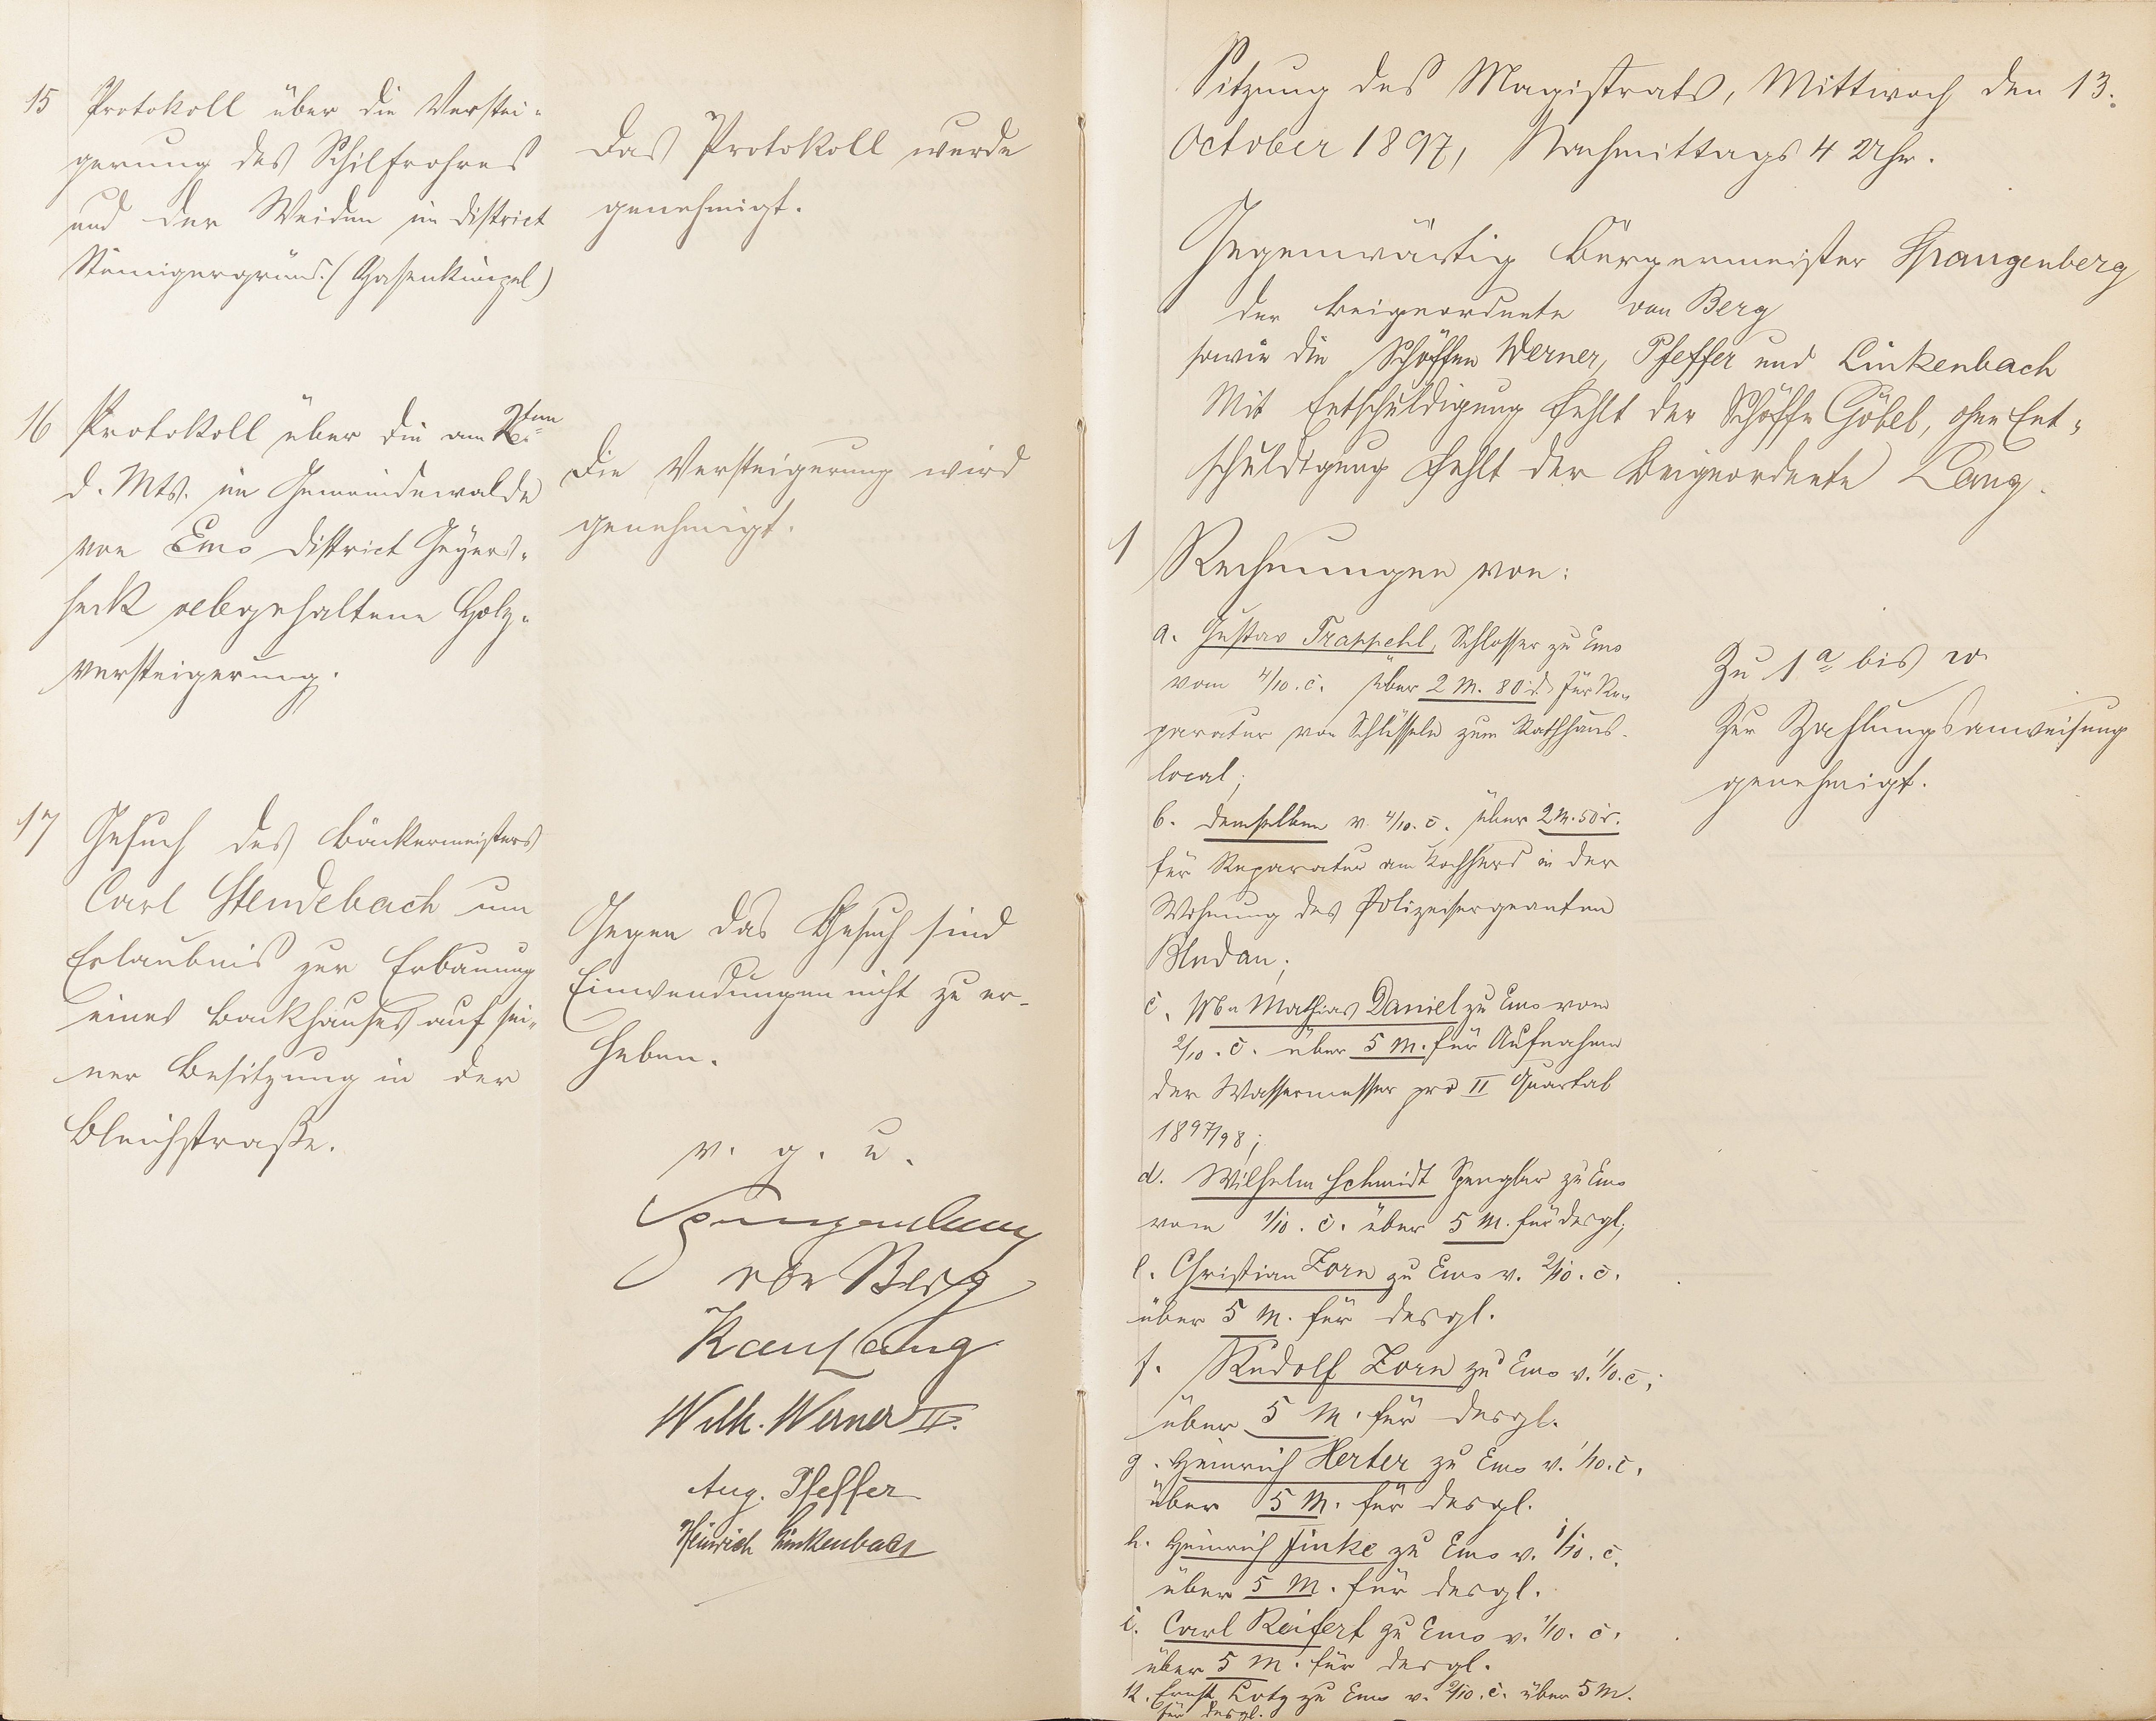 15 Protokoll über die Verstei-
gerung des Schilfrohres
und der Weiden im District
(Hasenkümpel)
Das Protokoll wurde
genehmigt.
16 Protokoll über die am
d. Mts. im Gemeindewalde
von Ems District Geyers-
heck abgehaltene Holz-
versteigerung.
Die Versteigerung wird
genehmigt.
17 Gesuch des Bäckermeisters
Carl Stendebach um
Erlaubnis zur Erbauung
eines Backhauses auf sei-
ner Besitzung in der
Bleichstraße.
Gegen das Gesuch sind
Einwendungen nicht zu er-
heben.
v. g. u.
Spangenberg
von Berg
Karl Lang
Wilh. Werner II.
Aug. Pfeffer
Heinrich Linkenbach
Sitzung des Magistrats, Mittwoch den 13.
October 1897, Nachmittags 4 Uhr.
Gegenwärtig Bürgermeister Spangenberg
der Beigeordnete von Berg
sowie die Schöffen Werner, Pfeffer und Linkenbach
Mit Entschuldigung fehlt der Schöffe Göbel, ohne Ent-
schuldigung fehlt der Beigeordnete Lang.
1 Rechnungen von:
a. Gustav Trappehl, Schlosser zu Ems
vom 4/10. c. über 2 M. 80 d. für Re-
paratur von Schlüsseln zum Rathhaus-
local;
b. demselben v. 4/10. c. über 2 M. 50 d.
für Reparatur am Kochherd in der
Wohnung des Polizeisergeanten
c. Mathias Daniel zu Ems vom
2/10. c. über 5 M. für Aufnahme
der Wassermesser pro II Quartal
1897/98;
d. Wilhelm Schmidt Spengler zu Ems
vom 1/10. c. über 5 M. für desgl;
e. Christian Zorn zu Ems v. 2/10. c.
über 5 M. für desgl.
f. Rudolf Zorn zu Ems v. 1/10. c;
über 5 M. für desgl.
g. Heinrich Herter zu Ems v. 1/10. c.
über 5 M. für desgl.
h. Heinrich Finke zu Ems v. 1/10. c.
über 5 M. für desgl.
i. Carl Reifert zu Ems v. 1/10. c.
über 5 M. für desgl.
k. Ernst Lotz zu Ems v. 2/10. c. über 5 M.
für desgl.
Zu 1 a bis w
Zur Zahlungsanweisung
genehmigt.